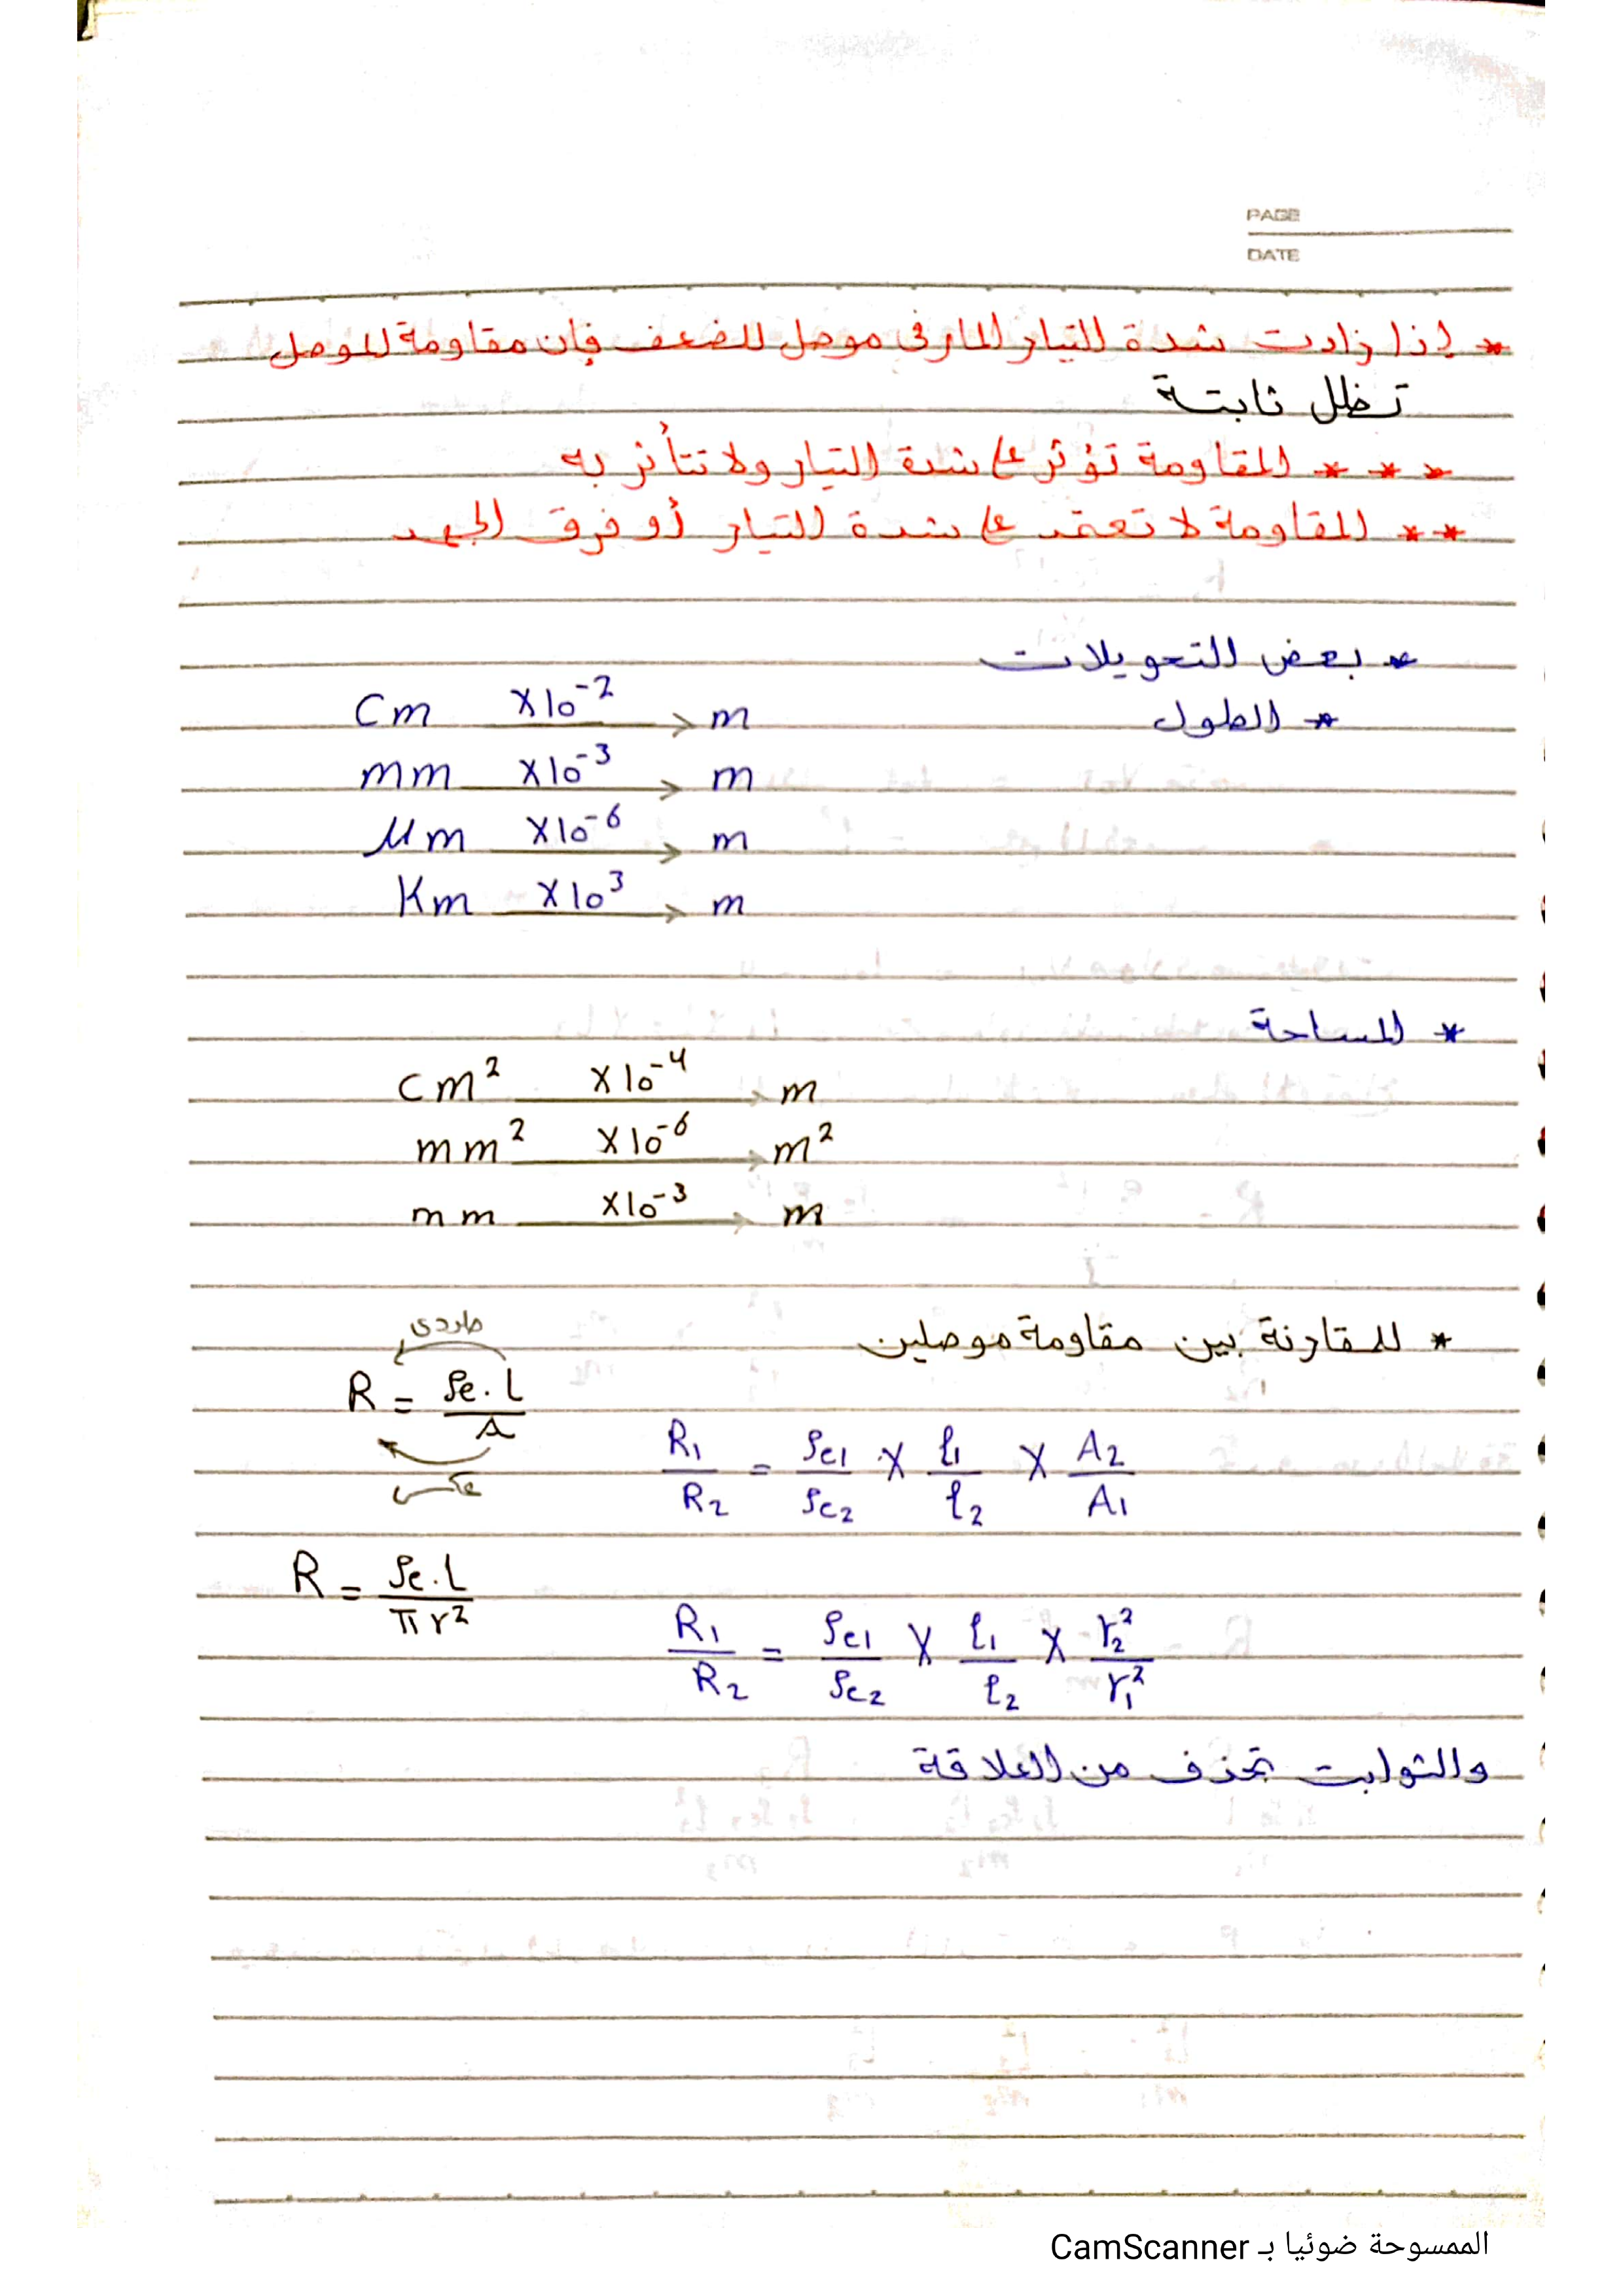 PAGE
DATE
* إذا زادت شدة التيار المار فى موصل للضعف فإن مقاومة الموصل
تظل ثابتة
* * * المقاومة تؤثر على شدة التيار ولا تتأثر به
** المقاومة لا تعتمد على شدة التيار أو فرق الجهد
* بعض التحويلات
* الطول
Cm ×10⁻² → m
mm ×10⁻³ → m
μm ×10⁻⁶ → m
Km ×10³ → m
* المساحة
cm² ×10⁻⁴ → m
mm² ×10⁻⁶ → m²
mm ×10⁻³ → m
* للمقارنة بين مقاومة موصلين
طردى
R = ρe.L / A
عكسى
R₁/R₂ = ρe₁/ρe₂ × ℓ₁/ℓ₂ × A₂/A₁
R = ρe.L / πr²
R₁/R₂ = ρe₁/ρe₂ × ℓ₁/ℓ₂ × r₂²/r₁²
والثوابت تحذف من العلاقة
الممسوحة ضوئيا بـ CamScanner